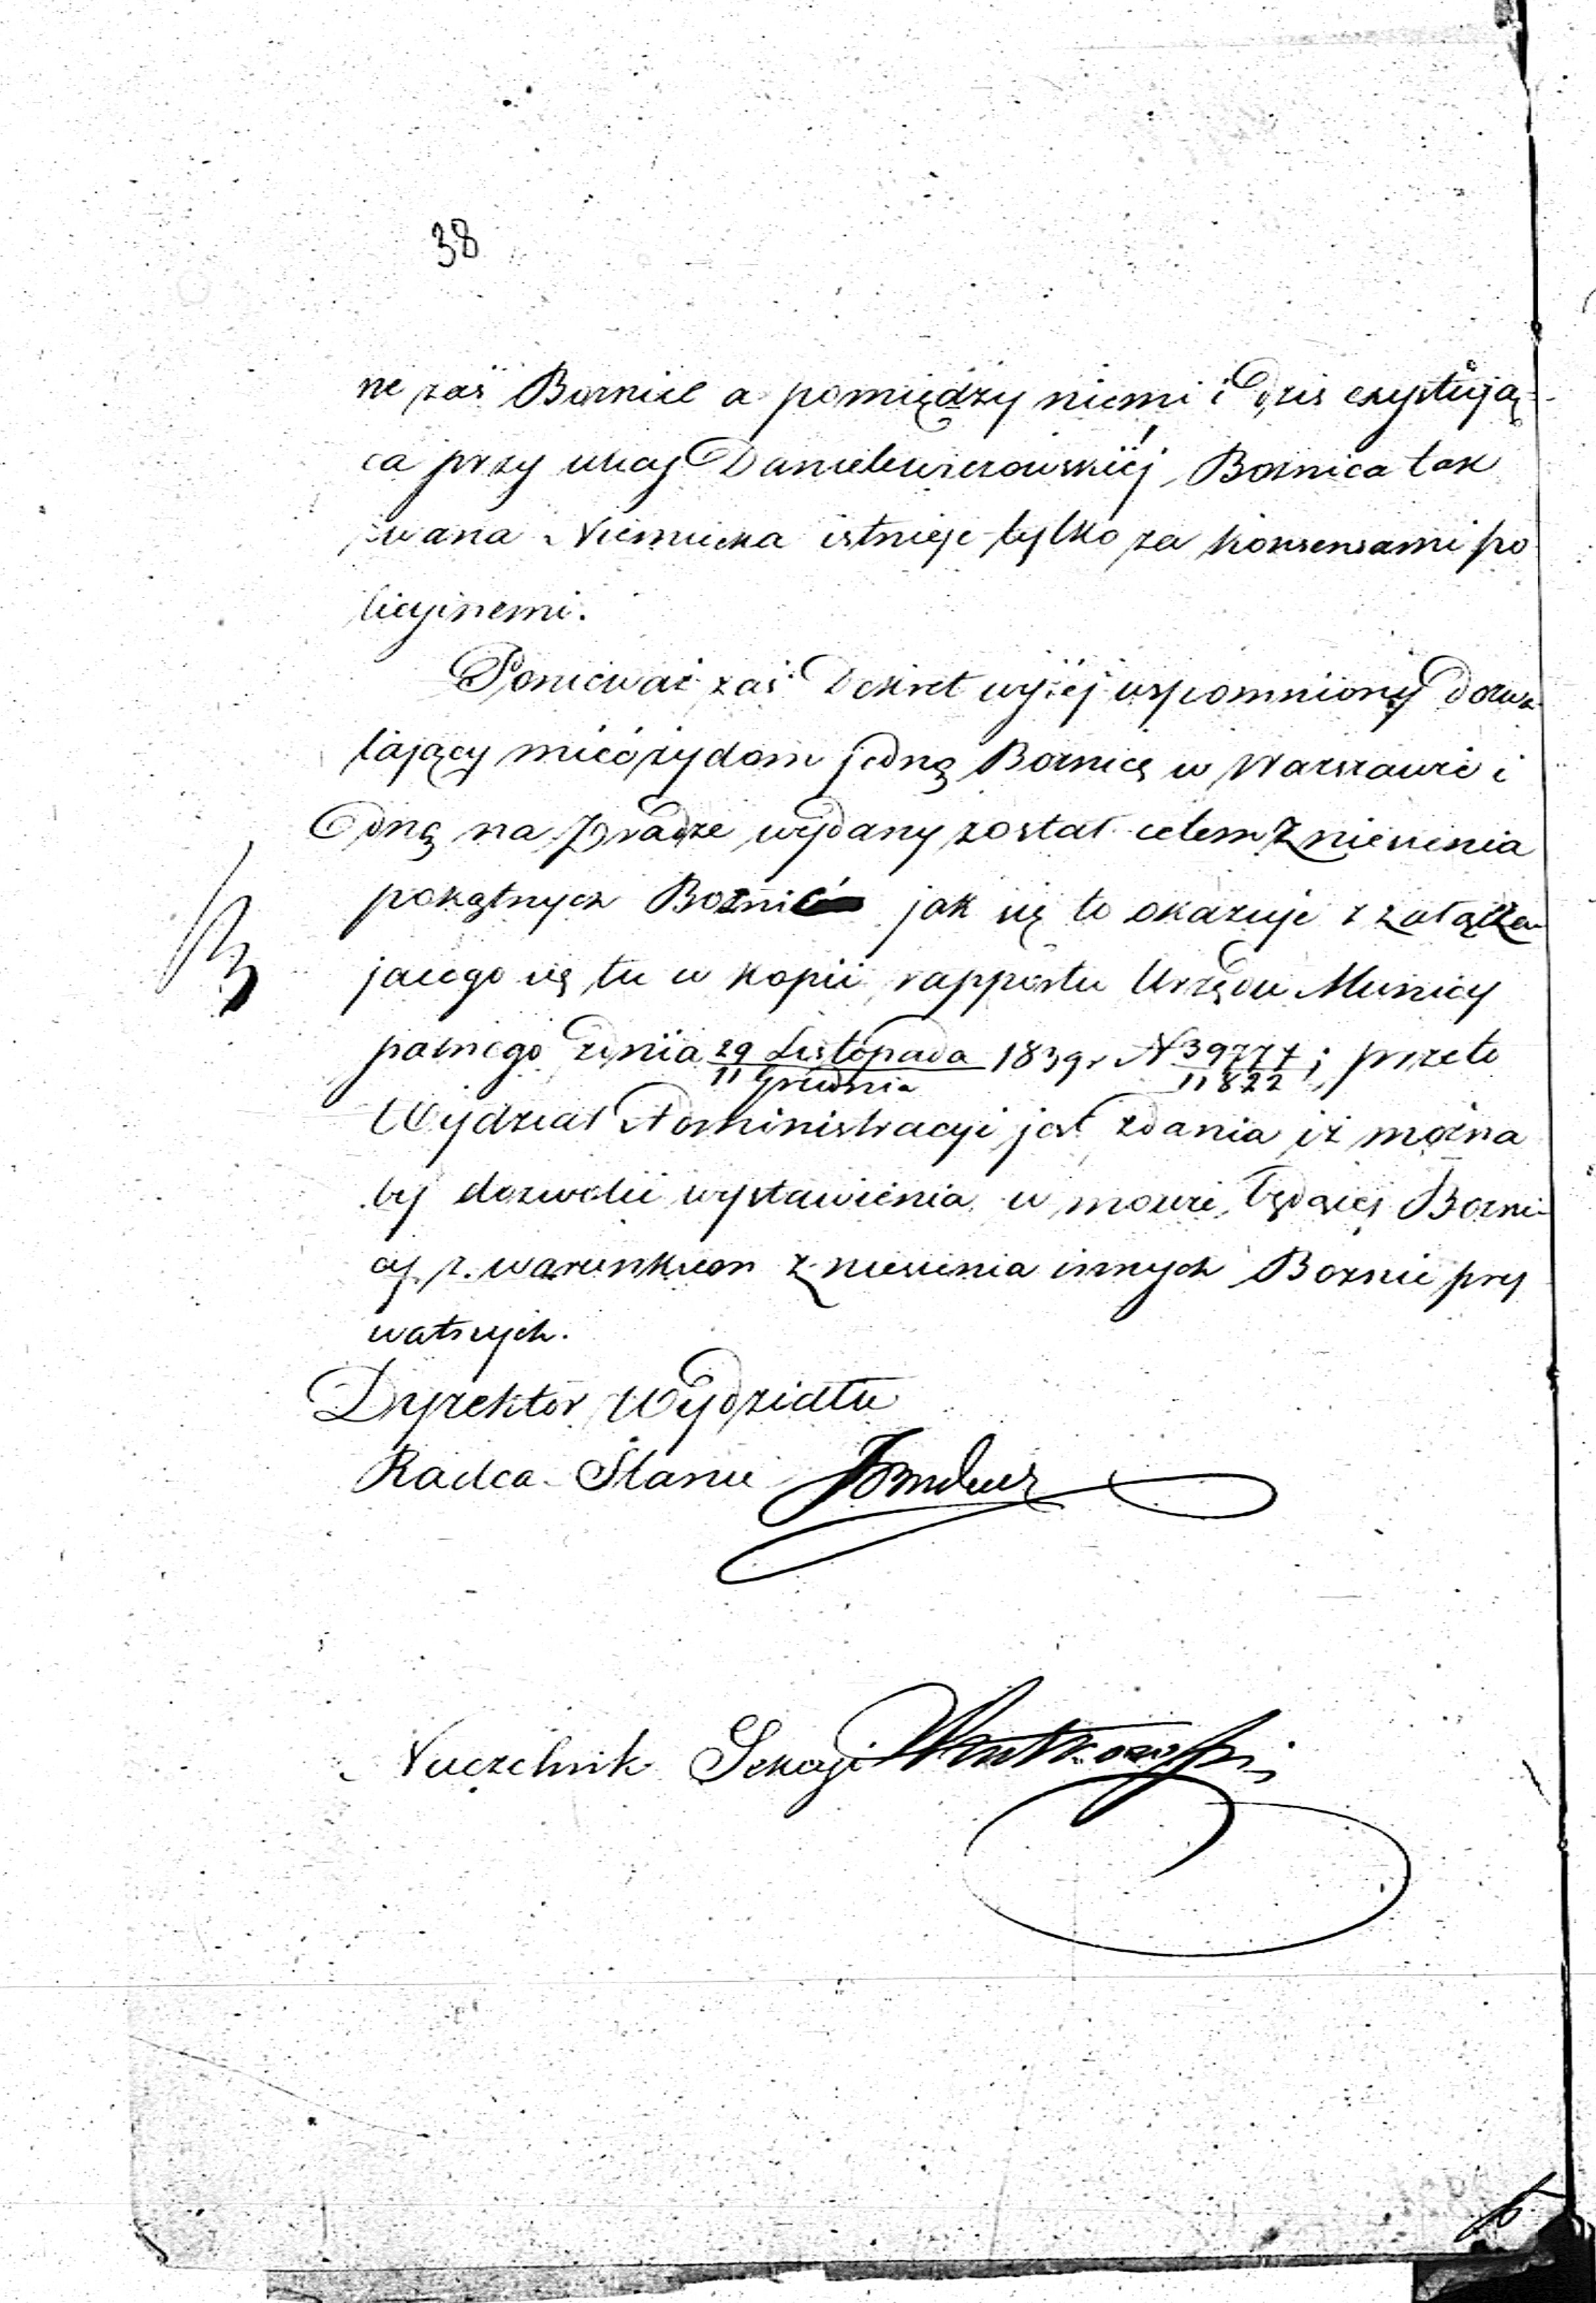 38
ne zaś Boznice a pomiędzy niemi i dziś exystują-
ca przy ulicy Danielewiczowskiej, Boznica tak
zwana Niemiecka istnieje tylko za konsensami po
licyjnemi.
Ponieważ zaś Dekret wyżej wspomniony dozwa
lający mieć żydom jedną Boznicę w Warszawie i
jedną na Pradze wydany został celem zniesienia
pokątnych Boznic jak się to okazuje z załącza
jącego się tu w kopii rapportu Urzędu Municy
palnego z dnia 29 Listopada / 11 Grudnia 1839 r N 39777 / 11822; przeto
Wydział Administracyi jest zdania iż można
by dozwolić wystawienia w mowie będącej Bozni-
cy z warunkiem zniesienia innych Boznic pry
watnych.
Dyrektor Wydziału
Radca Stanu
Naczelnik Sekcyi